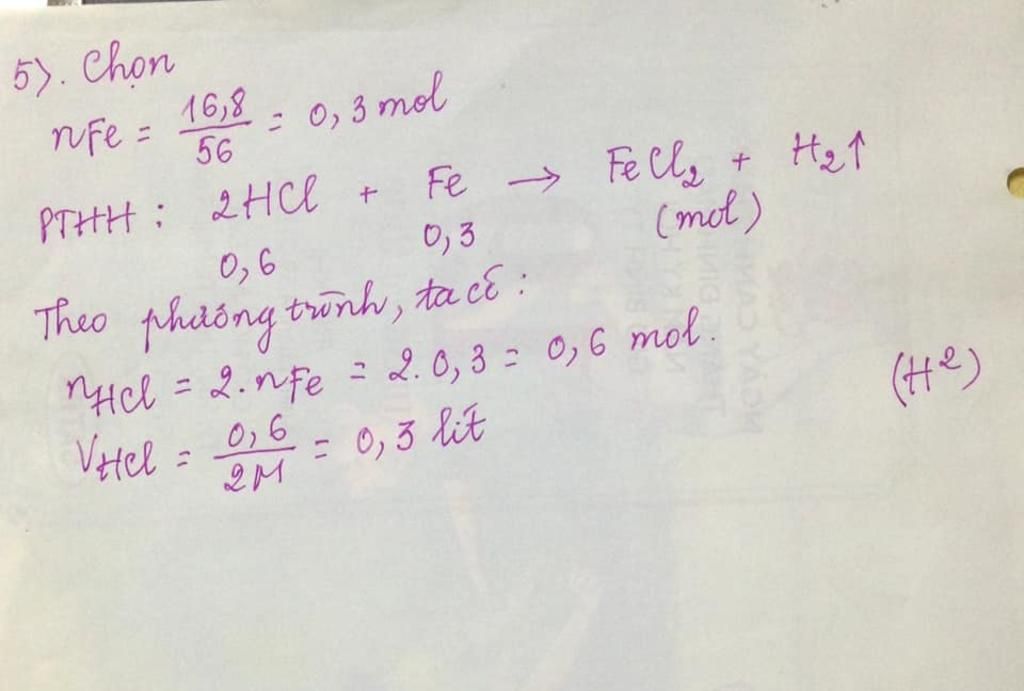 5). Chọn
nFe = 16,8/56 = 0,3 mol
PTHH: 2HCl + Fe → FeCl₂ + H₂↑
0,6 0,3 (mol)
Theo phương trình, ta có:
nHCl = 2.nFe = 2.0,3 = 0,6 mol.
VHCl = 0,6/2M = 0,3 lít
(H²)